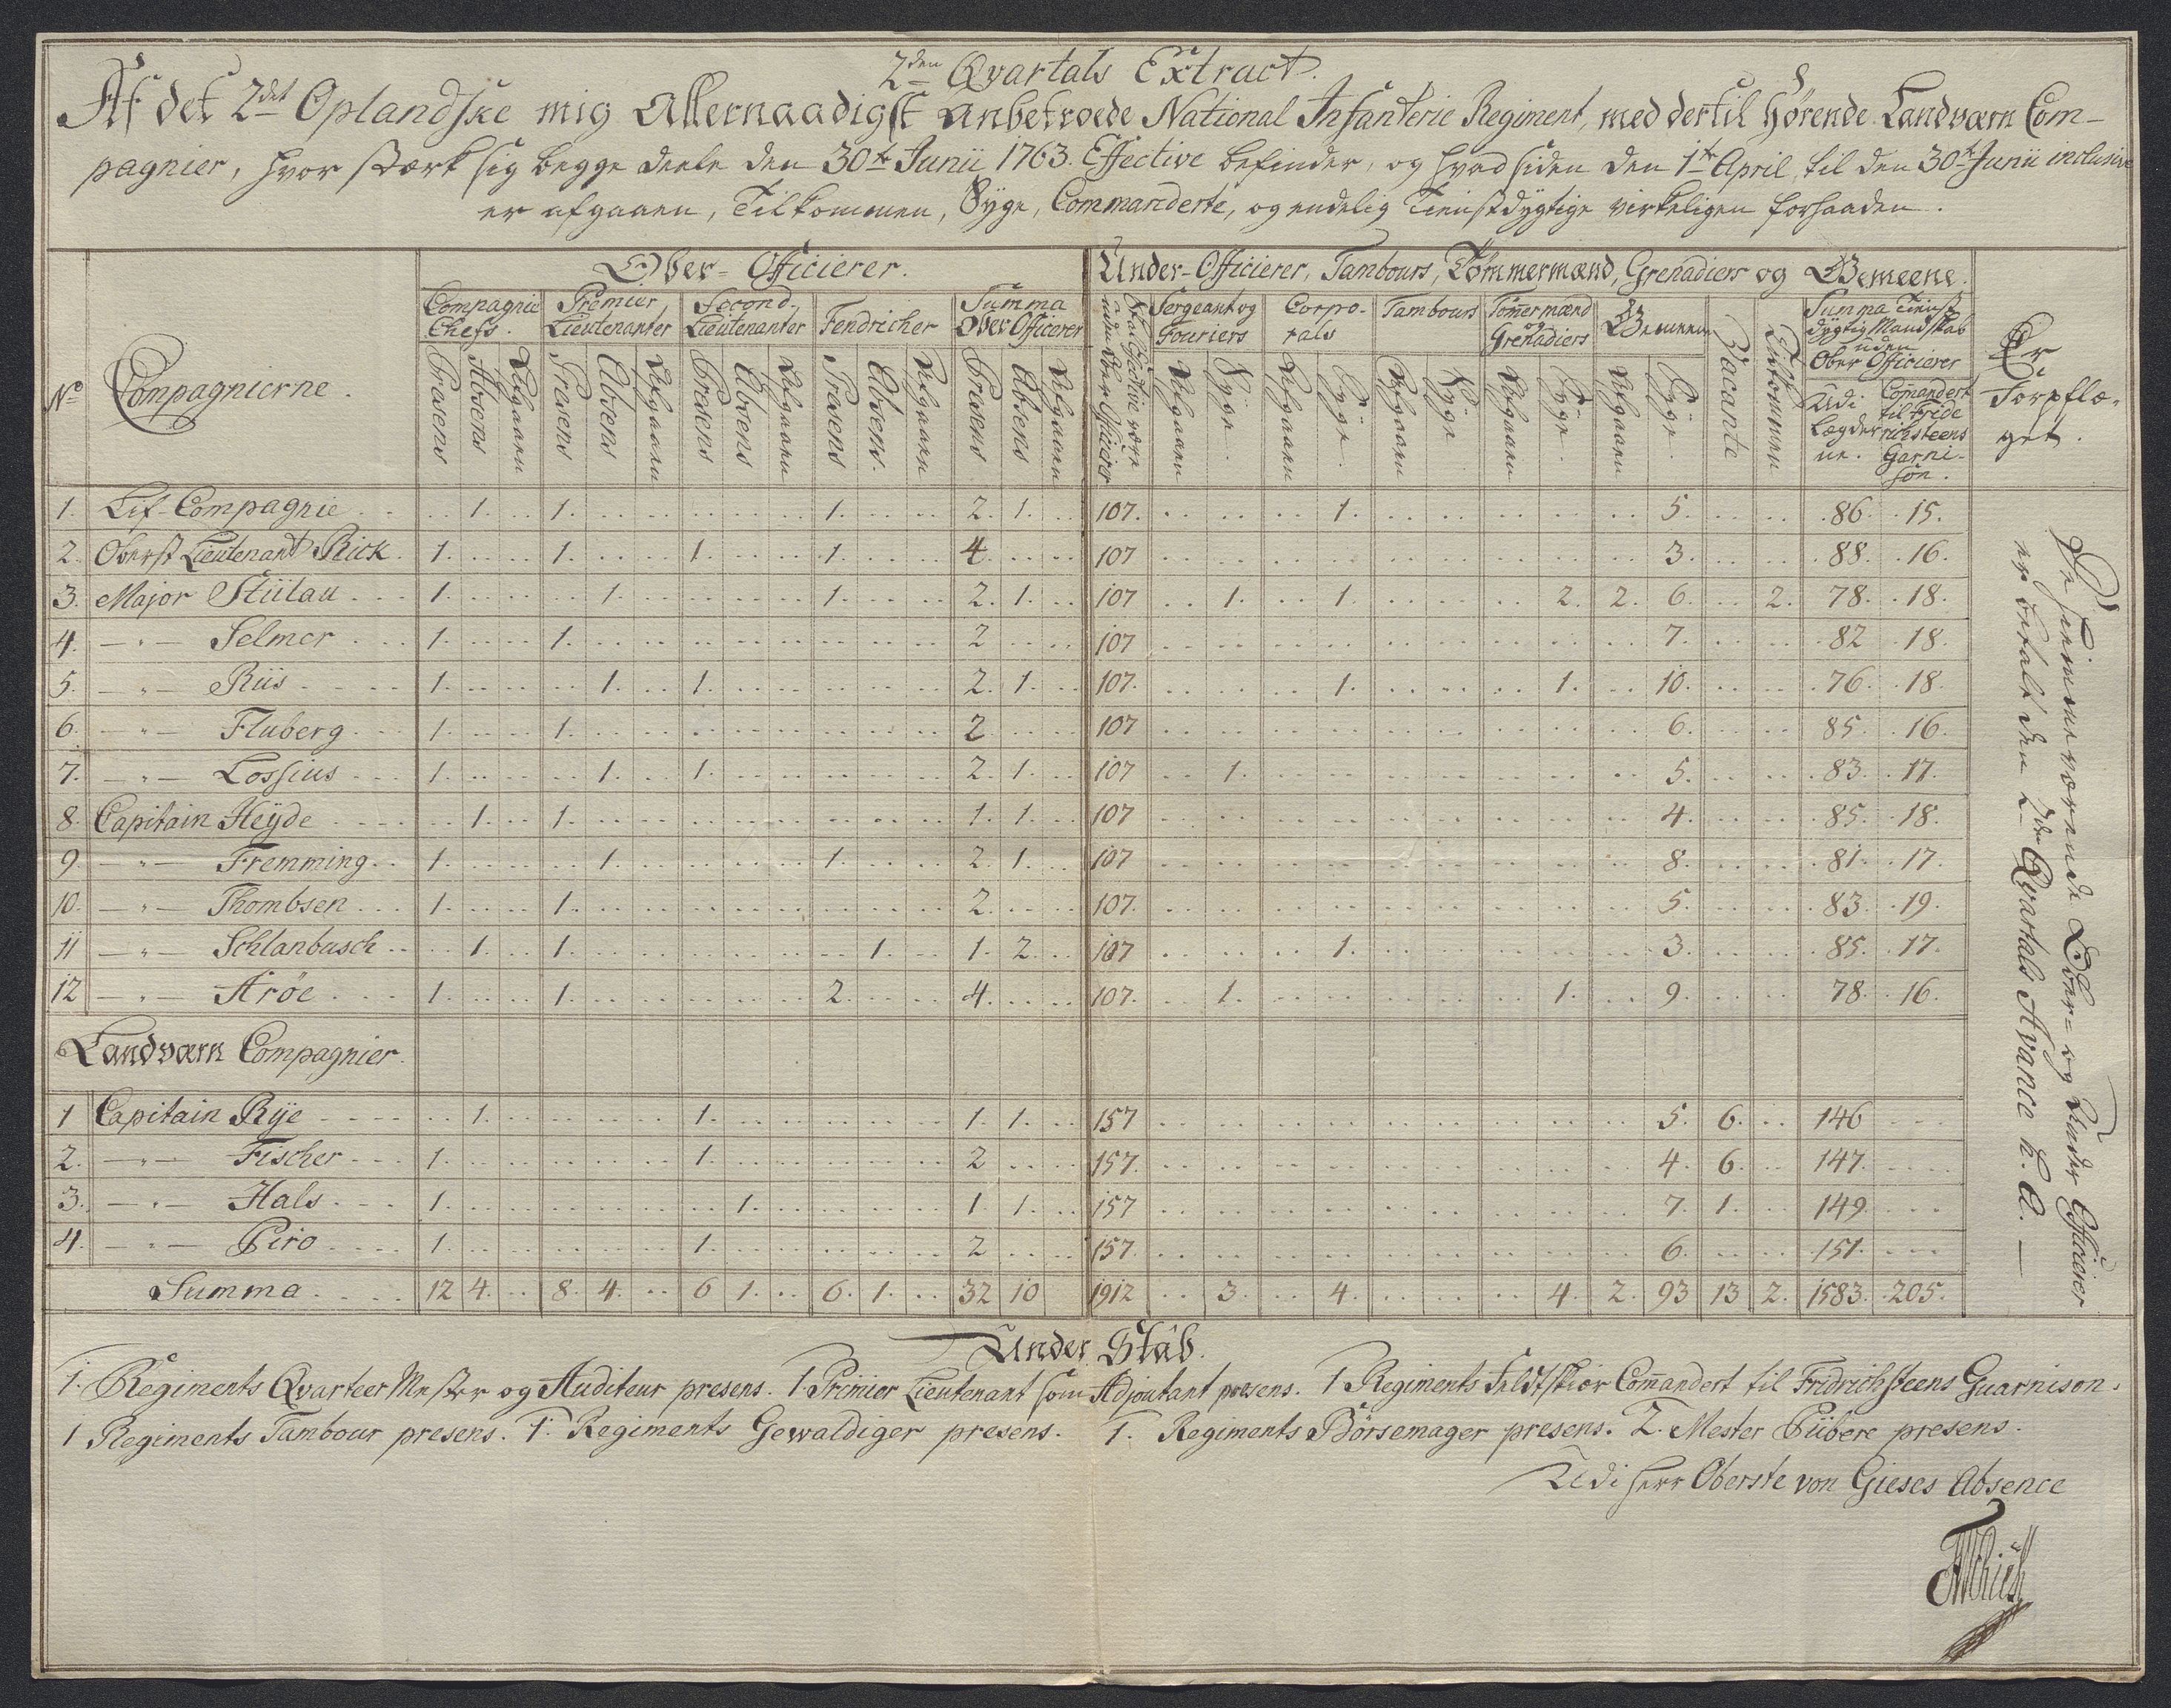 2den Qvartals Extract.
Af det 2det Oplandske mig Allernaadigst anbetroede National Infanterie Regiment, med dertil hörende Landværn Com-
pagnier, hvor stærk sig begge deele den 30te Junii 1763. Effective befinder, og hvad siden den 1te April, til den 30te Junii inclusive
er afgaaen, Tilkommen, Syge, Commanderte, og endelig Tienstdygtige virkeligen forhaanden.
Ober-Officierer. Under-Officierer, Tambours, Tömmermænd, Grenadiers og Gemeene.
No Compagnierne.
Compagnie Chefs. Premier Lieutenanter Second-Lieutenanter Fendricher Summa Ober Officerer
Sergeant og Fouriers Corpo-rals Tambours Tömermænd og Grenadiers Gemeene Vacante Tilkommen
Summa Tienst dygtig Mandskab uden Ober Officierer
Udi Lægderne. Comandert til Friderichsteens Garnison.
Er Forpflæ-get.
Presens Absens Afgaaen Presens Absens Afgaaen Presens Absens Afgaaen Presens Absens. Afgaaen Presens Absens Afgaaen
Afgaaen Syge. Afgaaen Syge. Afgaaen Syge Afgaaen Syge. Afgaaen Syge.
1. Lif-Compagnie 1. 1. 1. 2. 1. 107. 1. 5. 86. 15.
2. Oberst Lieutenant Rick. 1. 1. 1. 1. 4 107 3. 88. 16.
3. Major Stülau 1. 1. 1. 2. 1. 107 1. 1. 2. 2. 6. 2. 78. 18.
4. — " — Selmer 1. 1. 2 107 7. 82 18.
5. — " — Riis 1. 1. 1. 2. 1. 107. 1. 1. 10. 76. 18.
6. — " — Fluberg 1. 1. 2 107 6. 85. 16.
7. — " — Lossius 1. 1. 1. 2. 1. 107 1. 5. 83. 17.
8. Capitain Heÿde 1. 1. 1. 1. 107 4. 85. 18.
9 — " — Fremming 1. 1. 1. 2. 1. 107 8. 81. 17.
10. — " — Thombsen 1. 1. 2. 107. 5. 83. 19.
11 — " — Schlanbusch 1. 1. 1. 1. 2. 107 1. 3. 85. 17.
12 — " — Aröe 1. 1. 2. 4. 107. 1. 1. 9. 78. 16.
Landværn Compagnier.
1 Capitain Rÿe 1. 1. 1. 1. 157 5. 6. 146
2. — " — Fischer 1. 1. 2 157. 4. 6. 147.
3. — " — Hals 1. 1. 1. 1. 157 7. 1. 149.
4. — " — Piro 1. 1. 2 157. 6. 151.
Summa 12 4. 8. 4. 6 1. 6. 1. 32 10 1912 3. 4. 4. 2. 93 13 2. 1583. 205.
De hiemmeværende Ober- og Under Officierer
er betalt den 2den Qvartals Avance h. a. —
Under Stab.
1. Regiments Qvarteer Mester og Auditeur presens. 1. Primier Lieutenant som Adjoutant presens. 1 Regiments Feldtskiær Comandert til Fridrichsteens Guarnison.
1 Regiments Tambour presens. 1. Regiments Gewaldiger presens. 1. Regiments Börsemager presens. 2. Mester Pübere presens.
Udi Herr Oberste von Gieses Absence